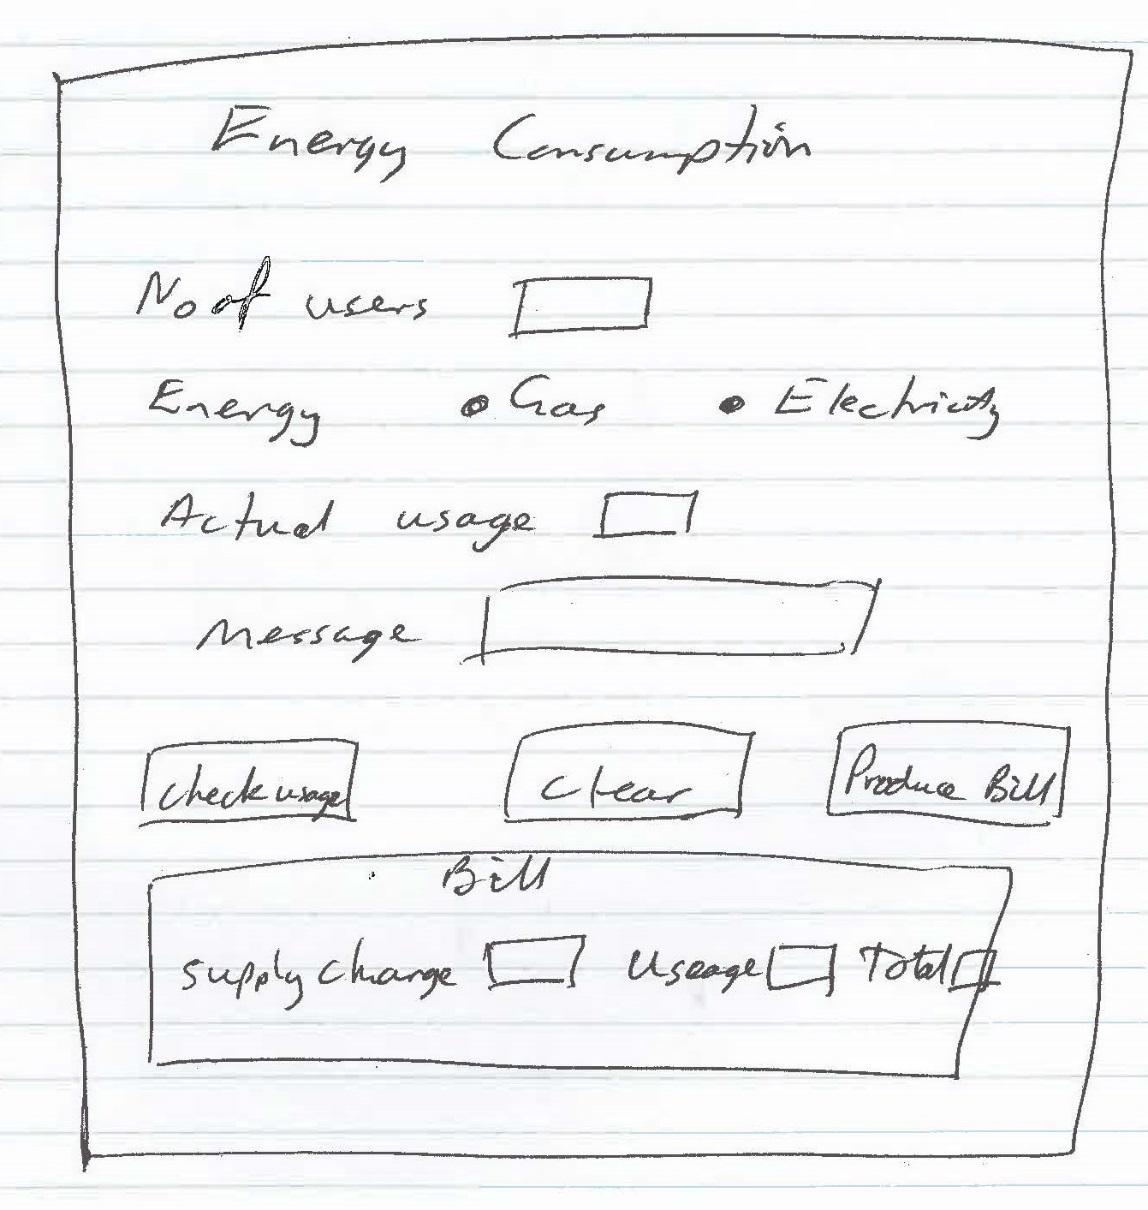 Energy Consumption
No of users
Energy • Gas • Electricity
Actual usage
Message
check usage Clear Produce Bill
Bill
supply charge Useage Total